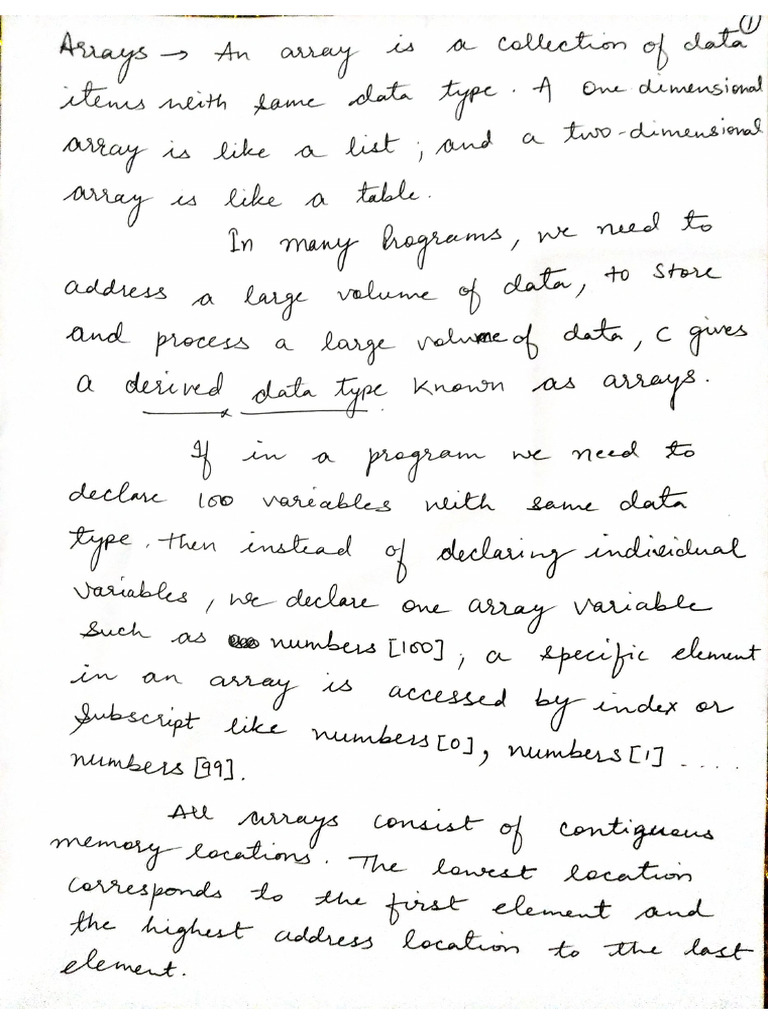 ①
Arrays → An array is a collection of data
items with same data type. A one dimensional
array is like a list; and a two-dimensional
array is like a table.
In many Programs, we need to
address a large volume of data, to store
and process a large volume of data, C gives
a derived data type known as arrays.
If in a program we need to
declare 100 variables with same data
type. then instead of declaring individual
variables, we declare one array variable
such as numbers [100]; a specific element
in an array is accessed by index or
subscript like numbers [0], numbers [1] .....
numbers [99].
All arrays consist of contiguous
memory locations. The lowest location
corresponds to the first element and
the highest address location to the last
element.